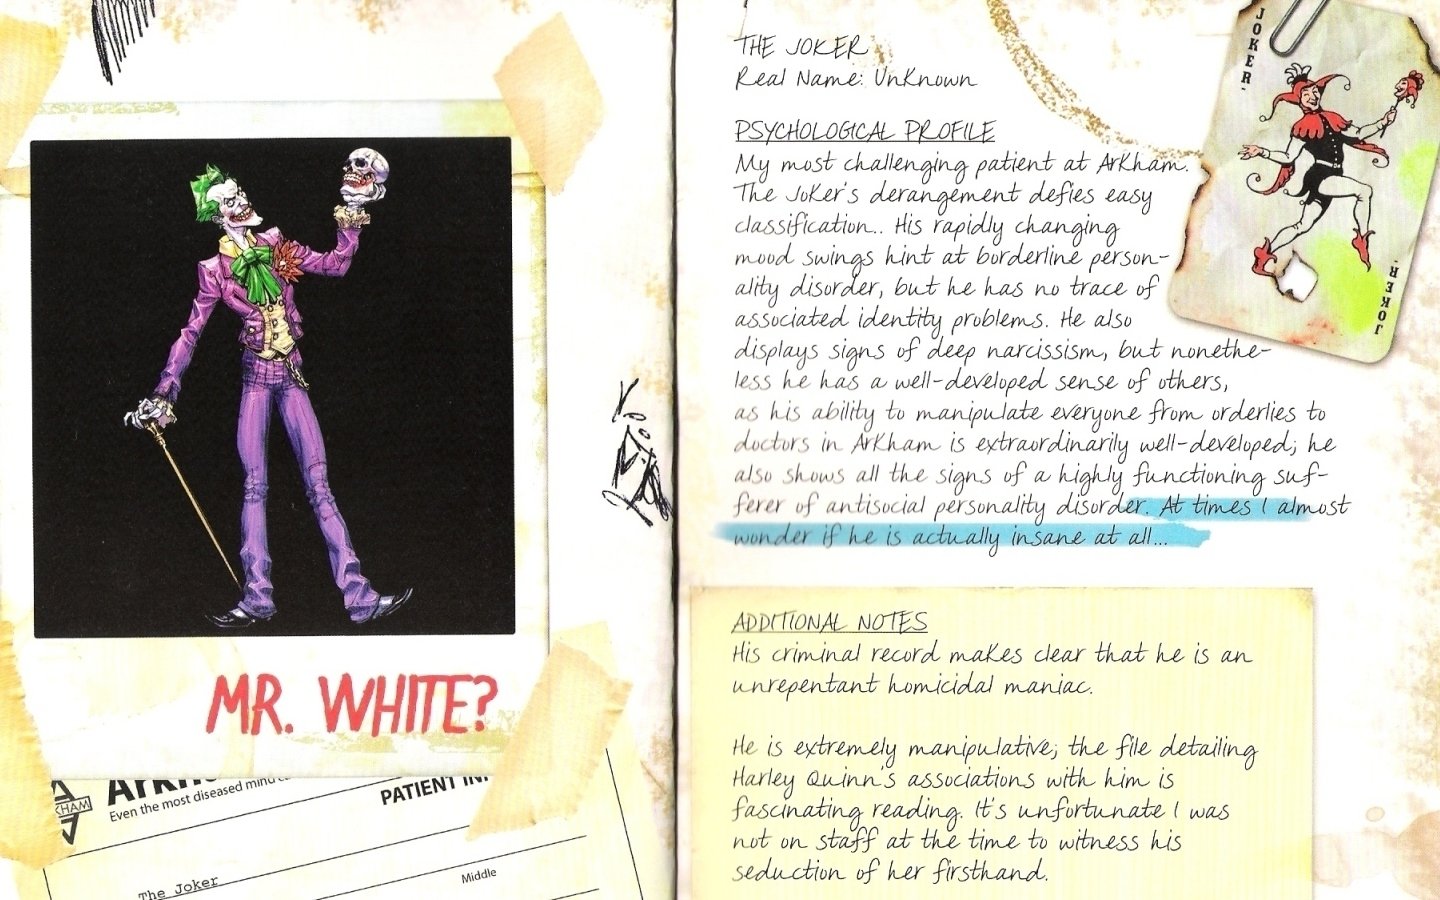 MR. WHITE?
Even the most diseased mind
PATIENT
The Joker
Middle
THE JOKER
Real Name: Unknown
PSYCHOLOGICAL PROFILE
My most challenging patient at Arkham.
The Joker's derangement defies easy
classification.. His rapidly changing
mood swings hint at borderline person-
ality disorder, but he has no trace of
associated identity problems. He also
displays signs of deep narcissism, but nonethe-
less he has a well-developed sense of others,
as his ability to manipulate everyone from orderlies to
doctors in Arkham is extraordinarily well-developed; he
also shows all the signs of a highly functioning suf-
ferer of antisocial personality disorder. At times I almost
wonder if he is actually insane at all...
ADDITIONAL NOTES
His criminal record makes clear that he is an
unrepentant homicidal maniac.
He is extremely manipulative; the file detailing
Harley Quinn's associations with him is
fascinating reading. It's unfortunate I was
not on staff at the time to witness his
seduction of her firsthand.
JOKER
JOKER